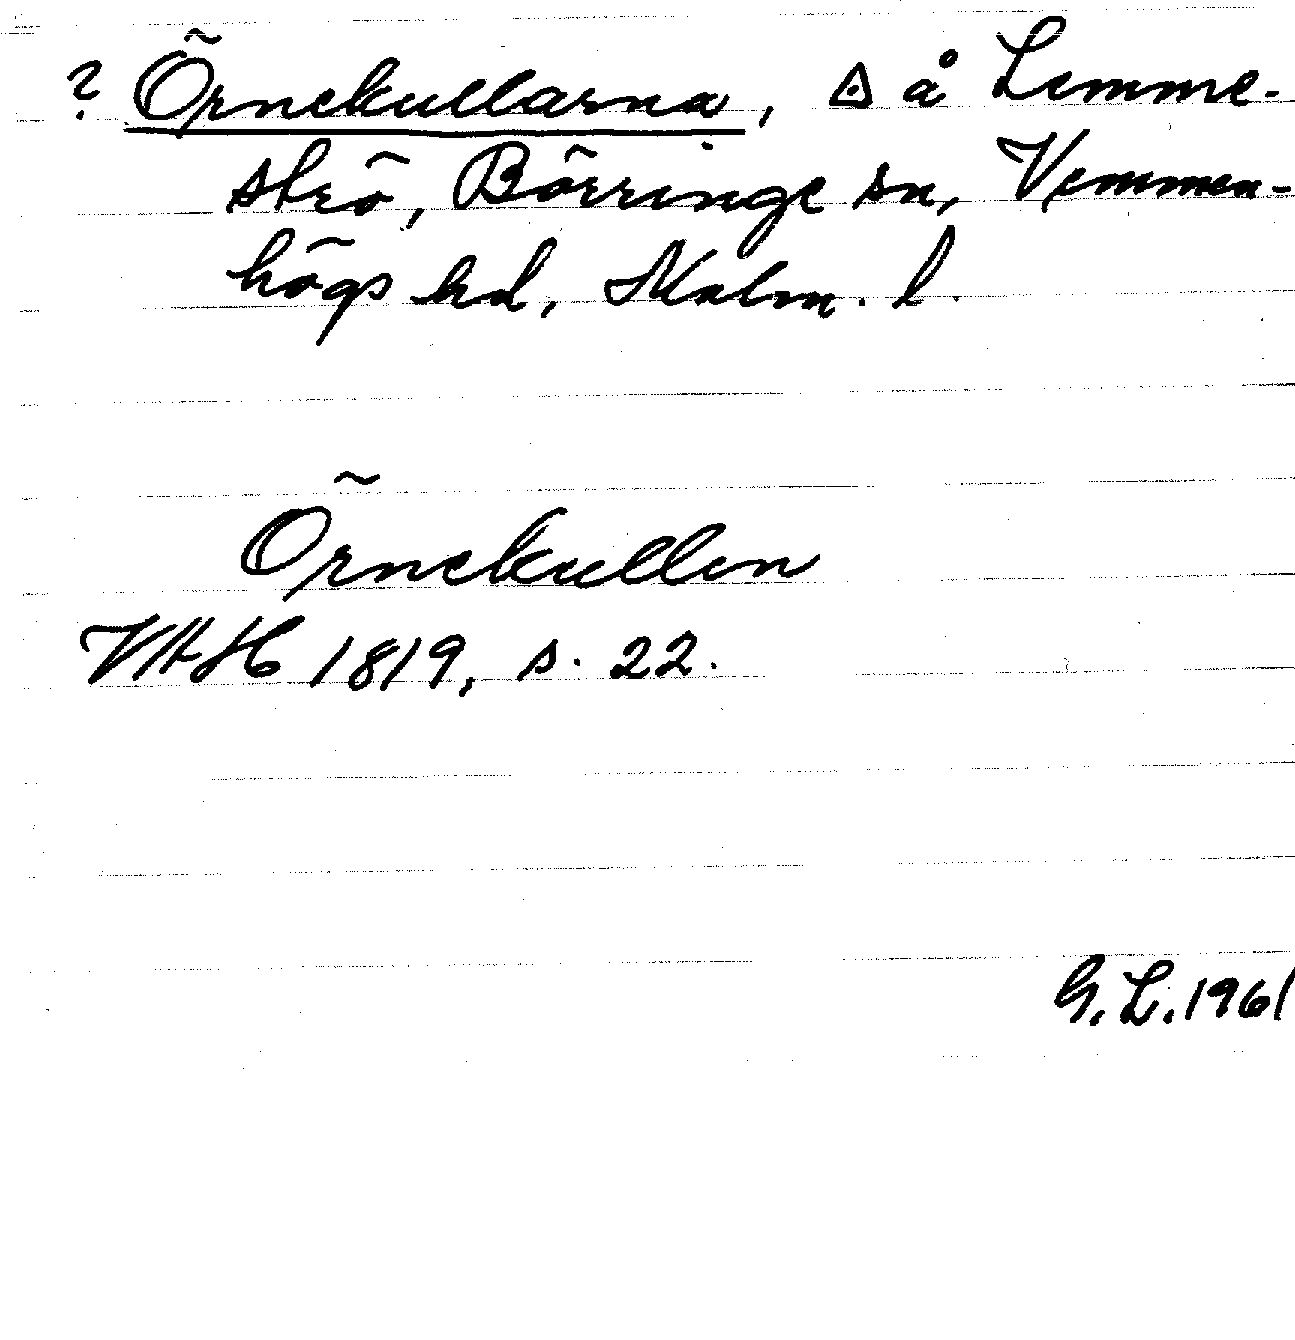 ? Örnekullarna, ◬ å Lemme-
strö, Börringe sn, Vemmen-
högs hd, Malm. l.
Örnekullen
VAH 1819, s. 22.
G. L. 1961